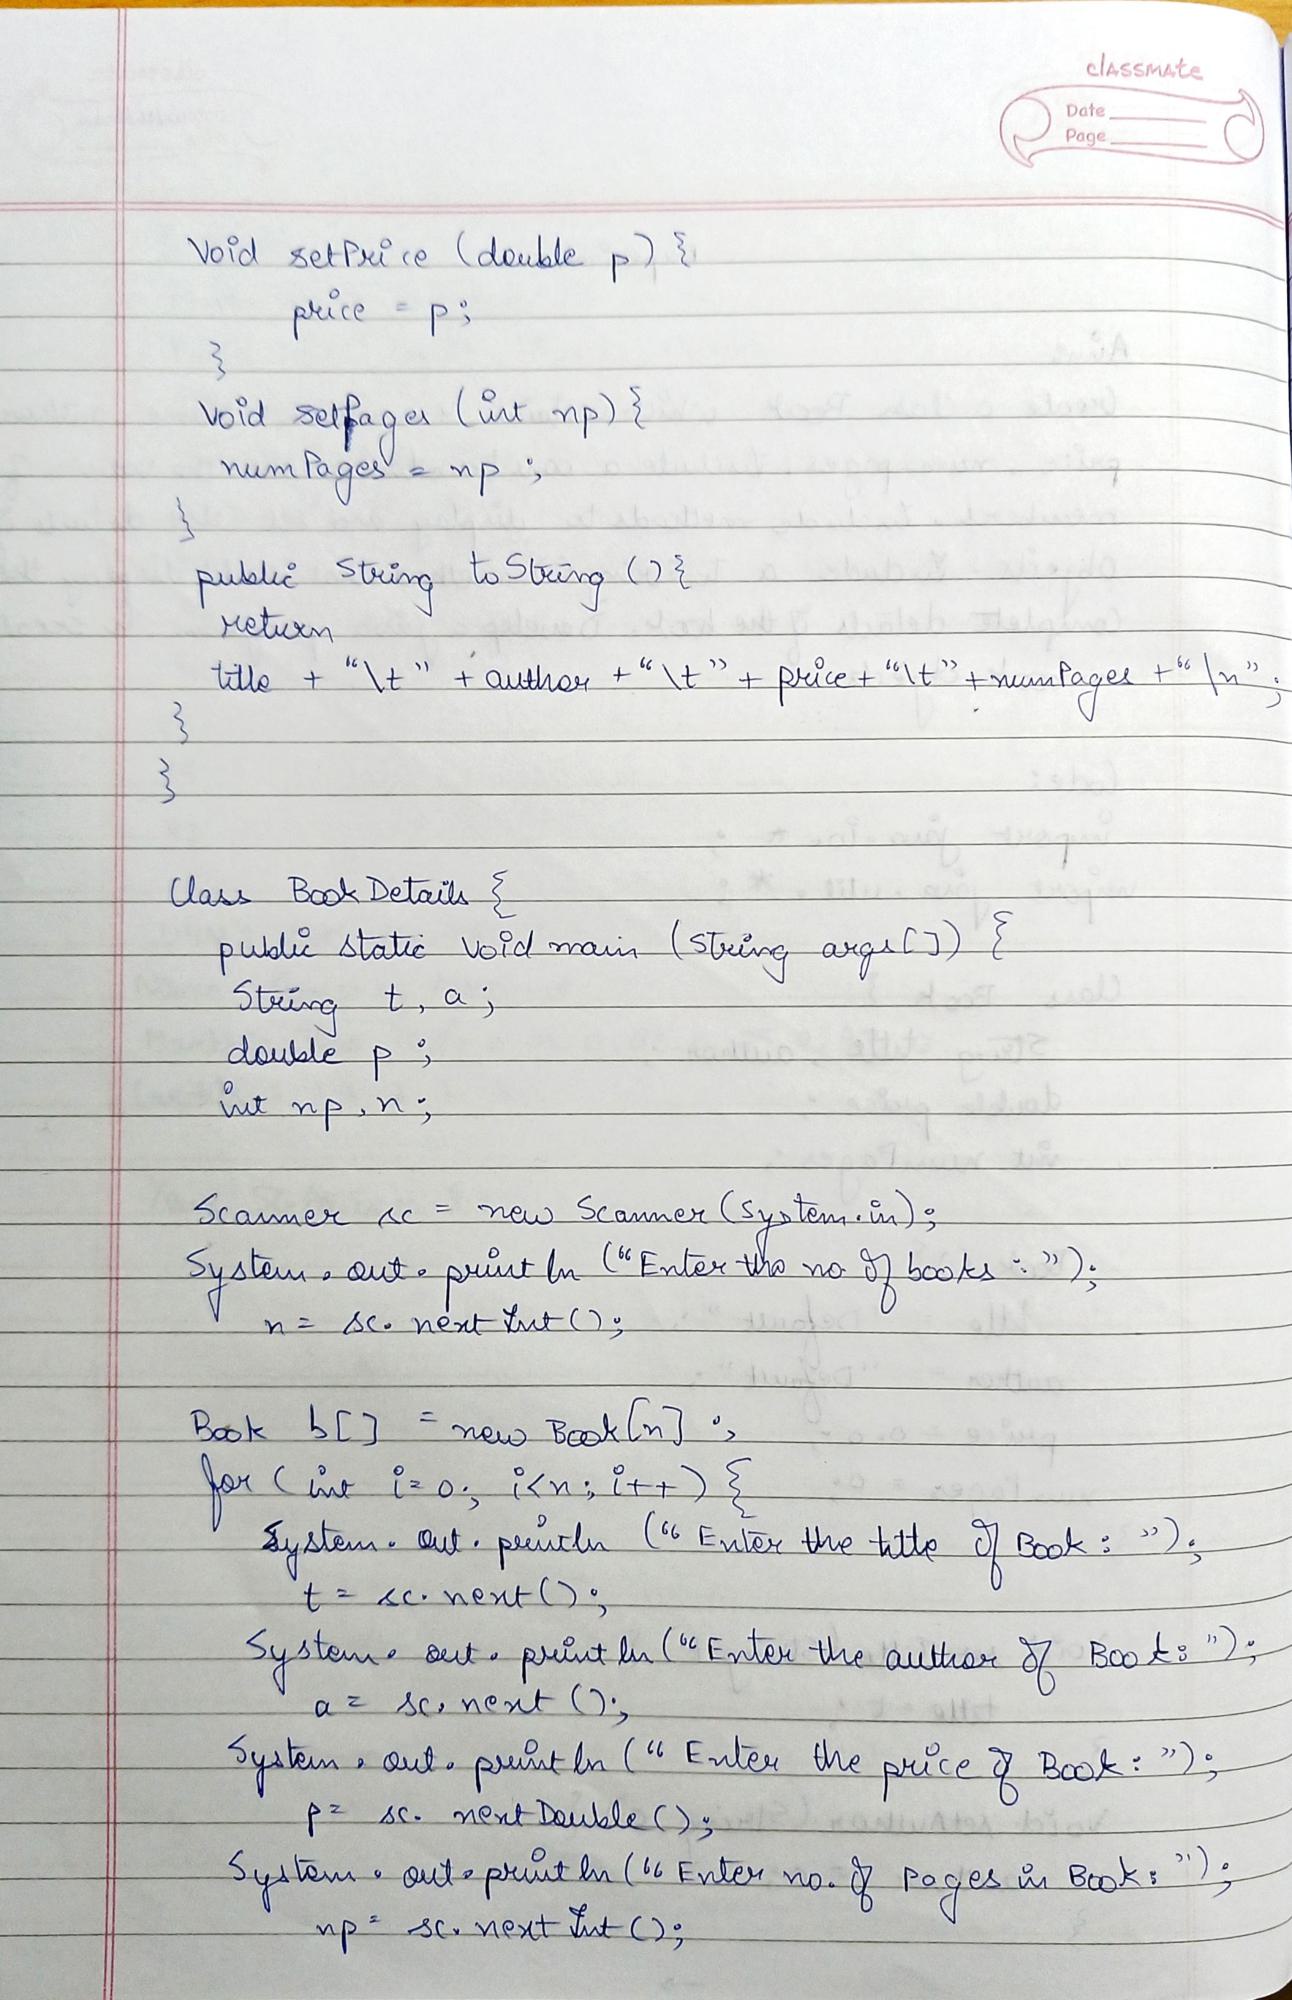 classmate
Date
Page
void setPrice (double p) {
price = p;
}
void setPages (int np) {
numPages = np ;
}
public String toString () {
return
title + "\t" + author + "\t" + price + "\t" + numPages + "\n" ;
}
}
Class BookDetails {
public static void main (String args[]) {
String t, a ;
double p ;
int np, n ;
Scanner sc = new Scanner (System.in);
System.out.println ("Enter the no of books : ");
n = sc.nextInt ();
Book b[] = new Book[n] ;
for (int i=0; i<n; i++) {
System.out.println ("Enter the title of Book : ");
t = sc.next ();
System.out.println ("Enter the author of Book : ");
a = sc.next ();
System.out.println ("Enter the price of Book : ");
p = sc.nextDouble ();
System.out.println ("Enter no. of Pages in Book : ");
np = sc.nextInt ();